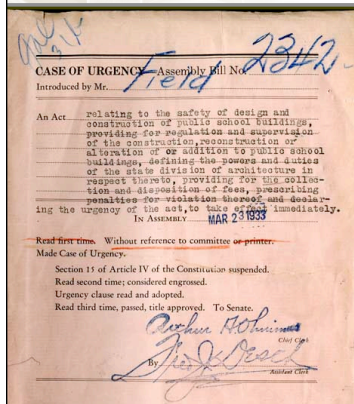 2342
CASE OF URGENCY—Assembly Bill No.
Introduced by Mr. Field
An Act relating to the safety of design and
construction of public school buildings,
providing for regulation and supervision
of the construction, reconstruction or
alteration of or addition to public school
buildings, defining the powers and duties
of the state division of architecture in
respect thereto, providing for the collec-
tion and disposition of fees, prescribing
penalties for violation thereof and declar-
ing the urgency of the act, to take effect immediately.
IN ASSEMBLY MAR 23 1933
Read first time. Without reference to committee or printer.
Made Case of Urgency.
Section 15 of Article IV of the Constitution suspended.
Read second time; considered engrossed.
Urgency clause read and adopted.
Read third time, passed, title approved. To Senate.
Chief Clerk
By
Assistant Clerk